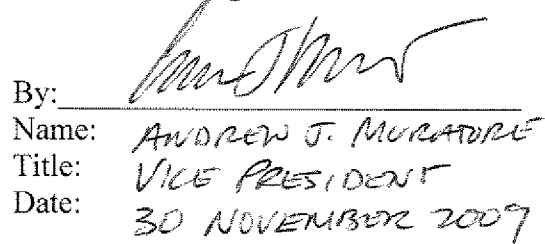 By:
Name: ANDREW J. MURATORE
Title: VICE PRESIDENT
Date: 30 NOVEMBER 2009